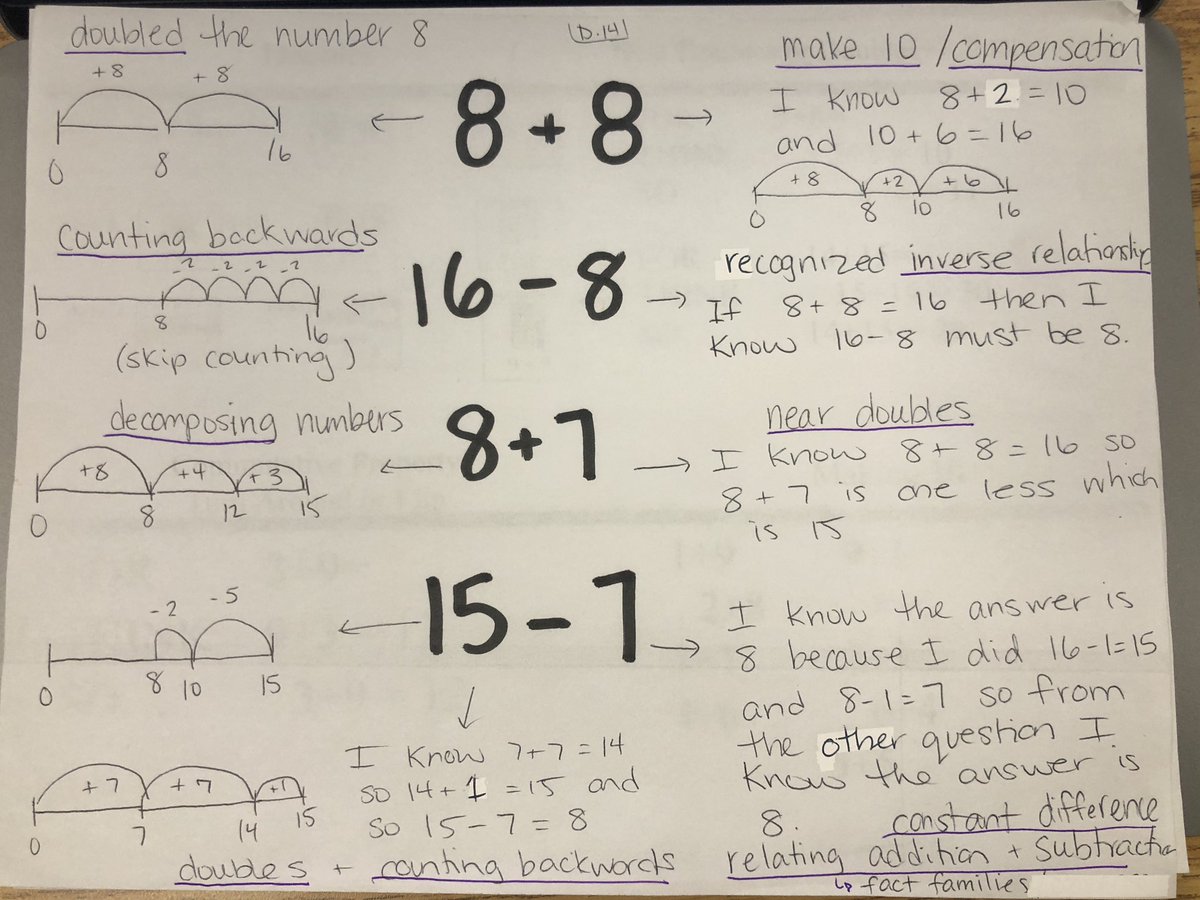 doubled the number 8
D.14
+8 +8
0 8 16
← 8 + 8 →
make 10 / compensation
I know 8+2 = 10
and 10 + 6 = 16
+8 +2 +6
0 8 10 16
Counting backwards
-2 -2 -2 -2
0 8 16
(skip counting)
← 16 - 8 →
recognized inverse relationship
If 8+8 = 16 then I
know 16-8 must be 8.
decomposing numbers
+8 +4 +3
0 8 12 15
← 8+7 →
near doubles
I know 8+8=16 so
8+7 is one less which
is 15
-2 -5
0 8 10 15
← 15 - 7 →
I know the answer is
8 because I did 16-1=15
and 8-1=7 so from
the other question I
know the answer is
8.
constant difference
relating addition + subtraction
↳ fact families
+7 +7 +1
0 7 14 15
I know 7+7=14
so 14+1 =15 and
so 15-7 = 8
doubles + counting backwords